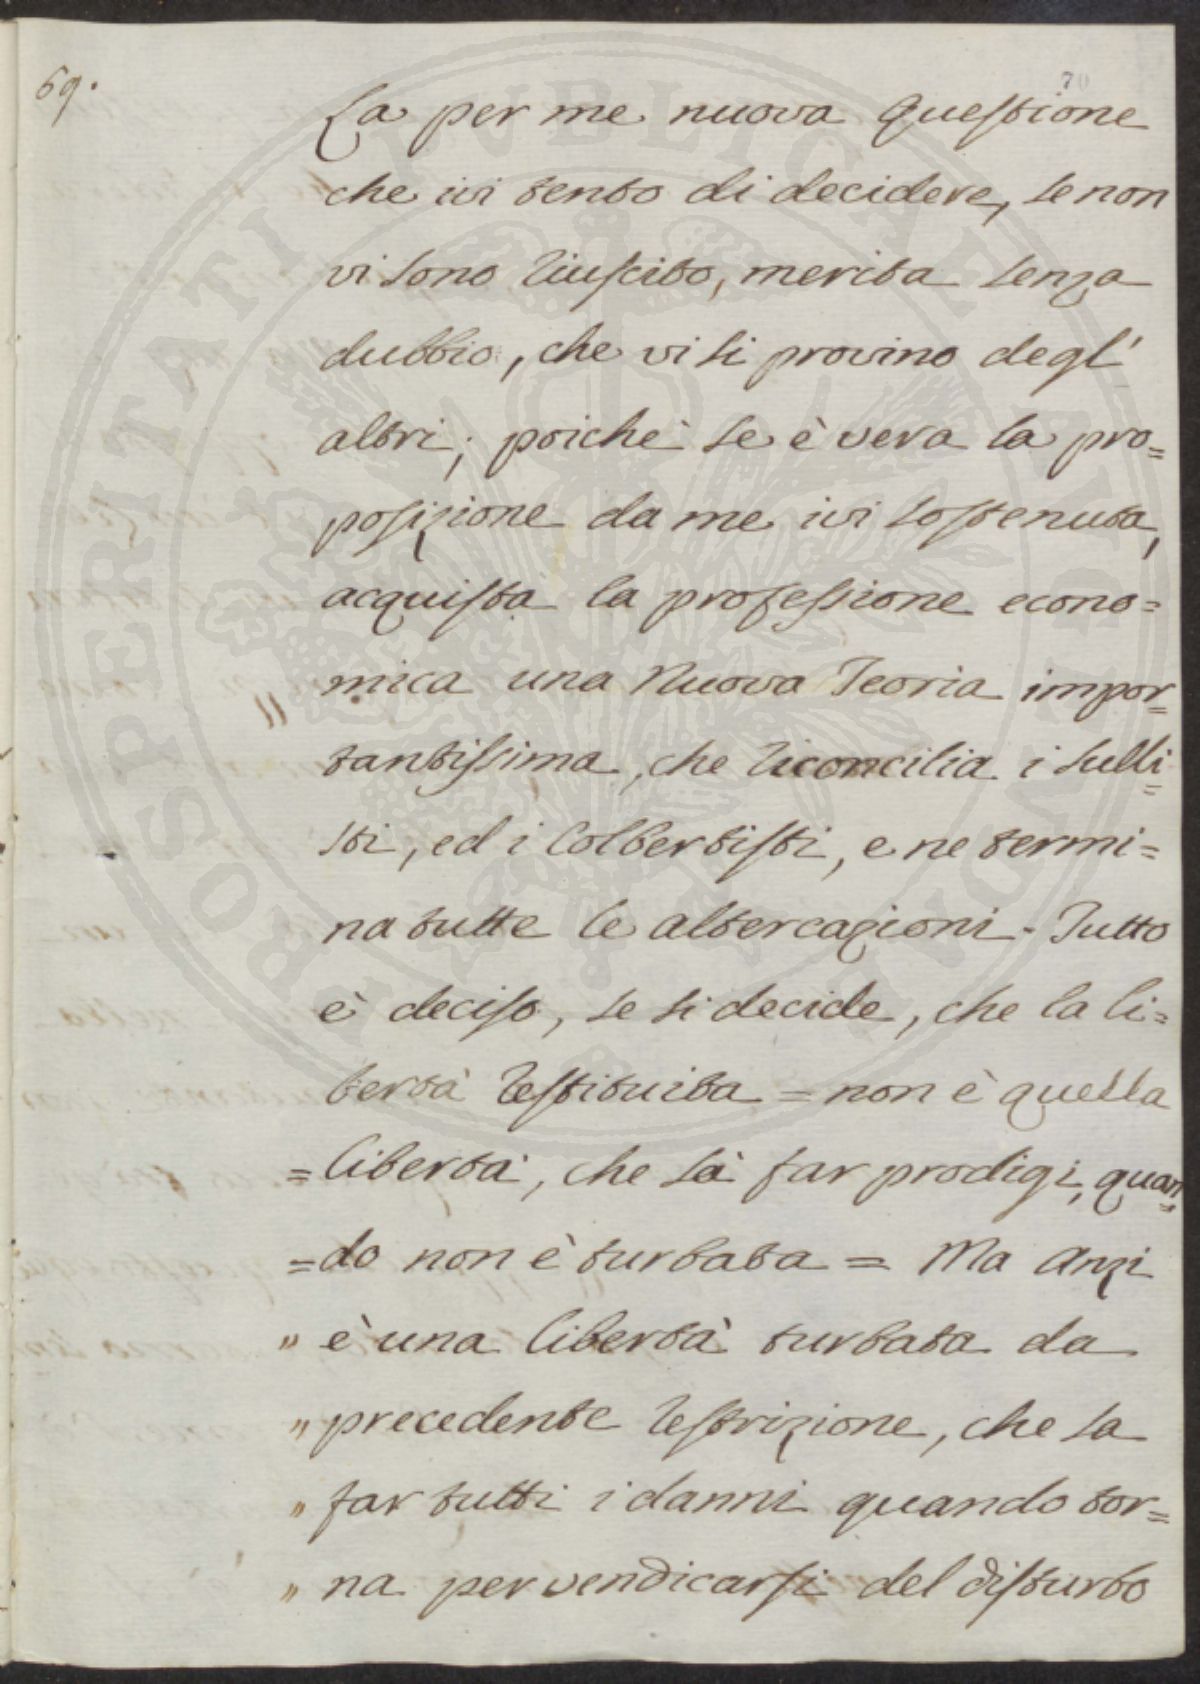 69.
70
La per me nuova Questione
che ivi tento di decidere, se non
vi sono riuscito, merita senza
dubbio, che vi si provino degl'
altri; poichè se è vera la pro=
posizione da me ivi sostenuta,
acquista la professione econo=
" mica una Nuova Teoria impor=
tantissima, che riconcilia i Sulli=
sti, ed i Colbertisti, e ne termi=
na tutte le altercazioni. Tutto
è deciso, se si decide, che la li=
bertà restituita = non è quella
= libertà, che sà far prodigi, quan=
= do non è turbata = Ma Anzi
" è una libertà turbata da
" precedente restrizione, che sa
" far tutti i danni quando tor=
" na per vendicarsi del disturbo
PROSPERITATI PUBLICAE AUGENDAE